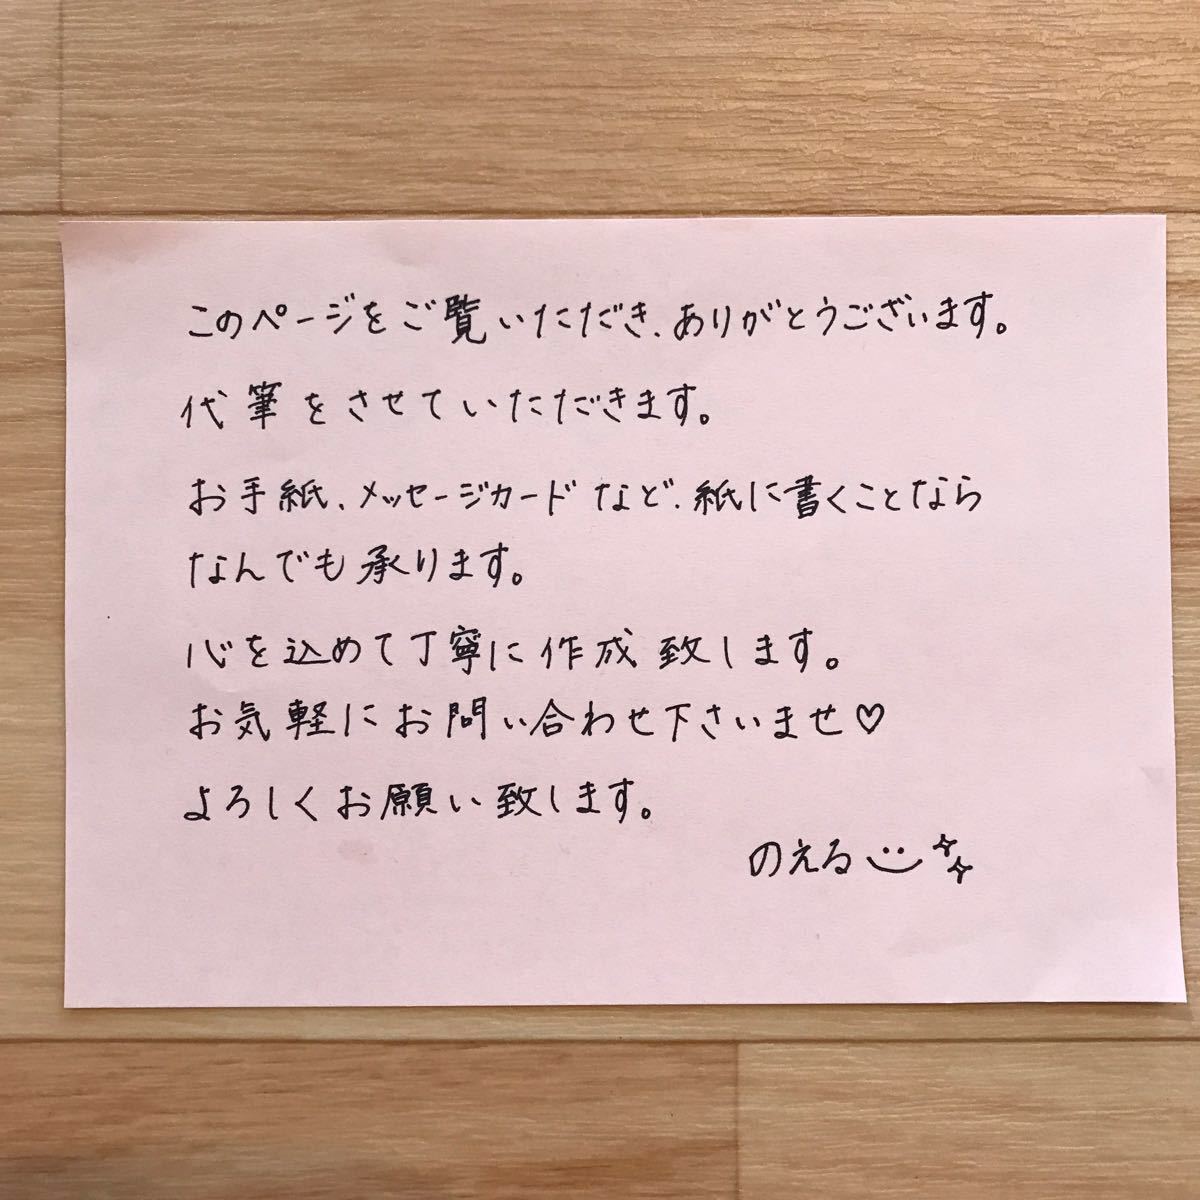 このページをご覧いただき、ありがとうございます。
代筆をさせていただきます。
お手紙、メッセージカードなど、紙に書くことなら
なんでも承ります。
心を込めて丁寧に作成致します。
お気軽にお問い合わせ下さいませ♡
よろしくお願い致します。
のえる